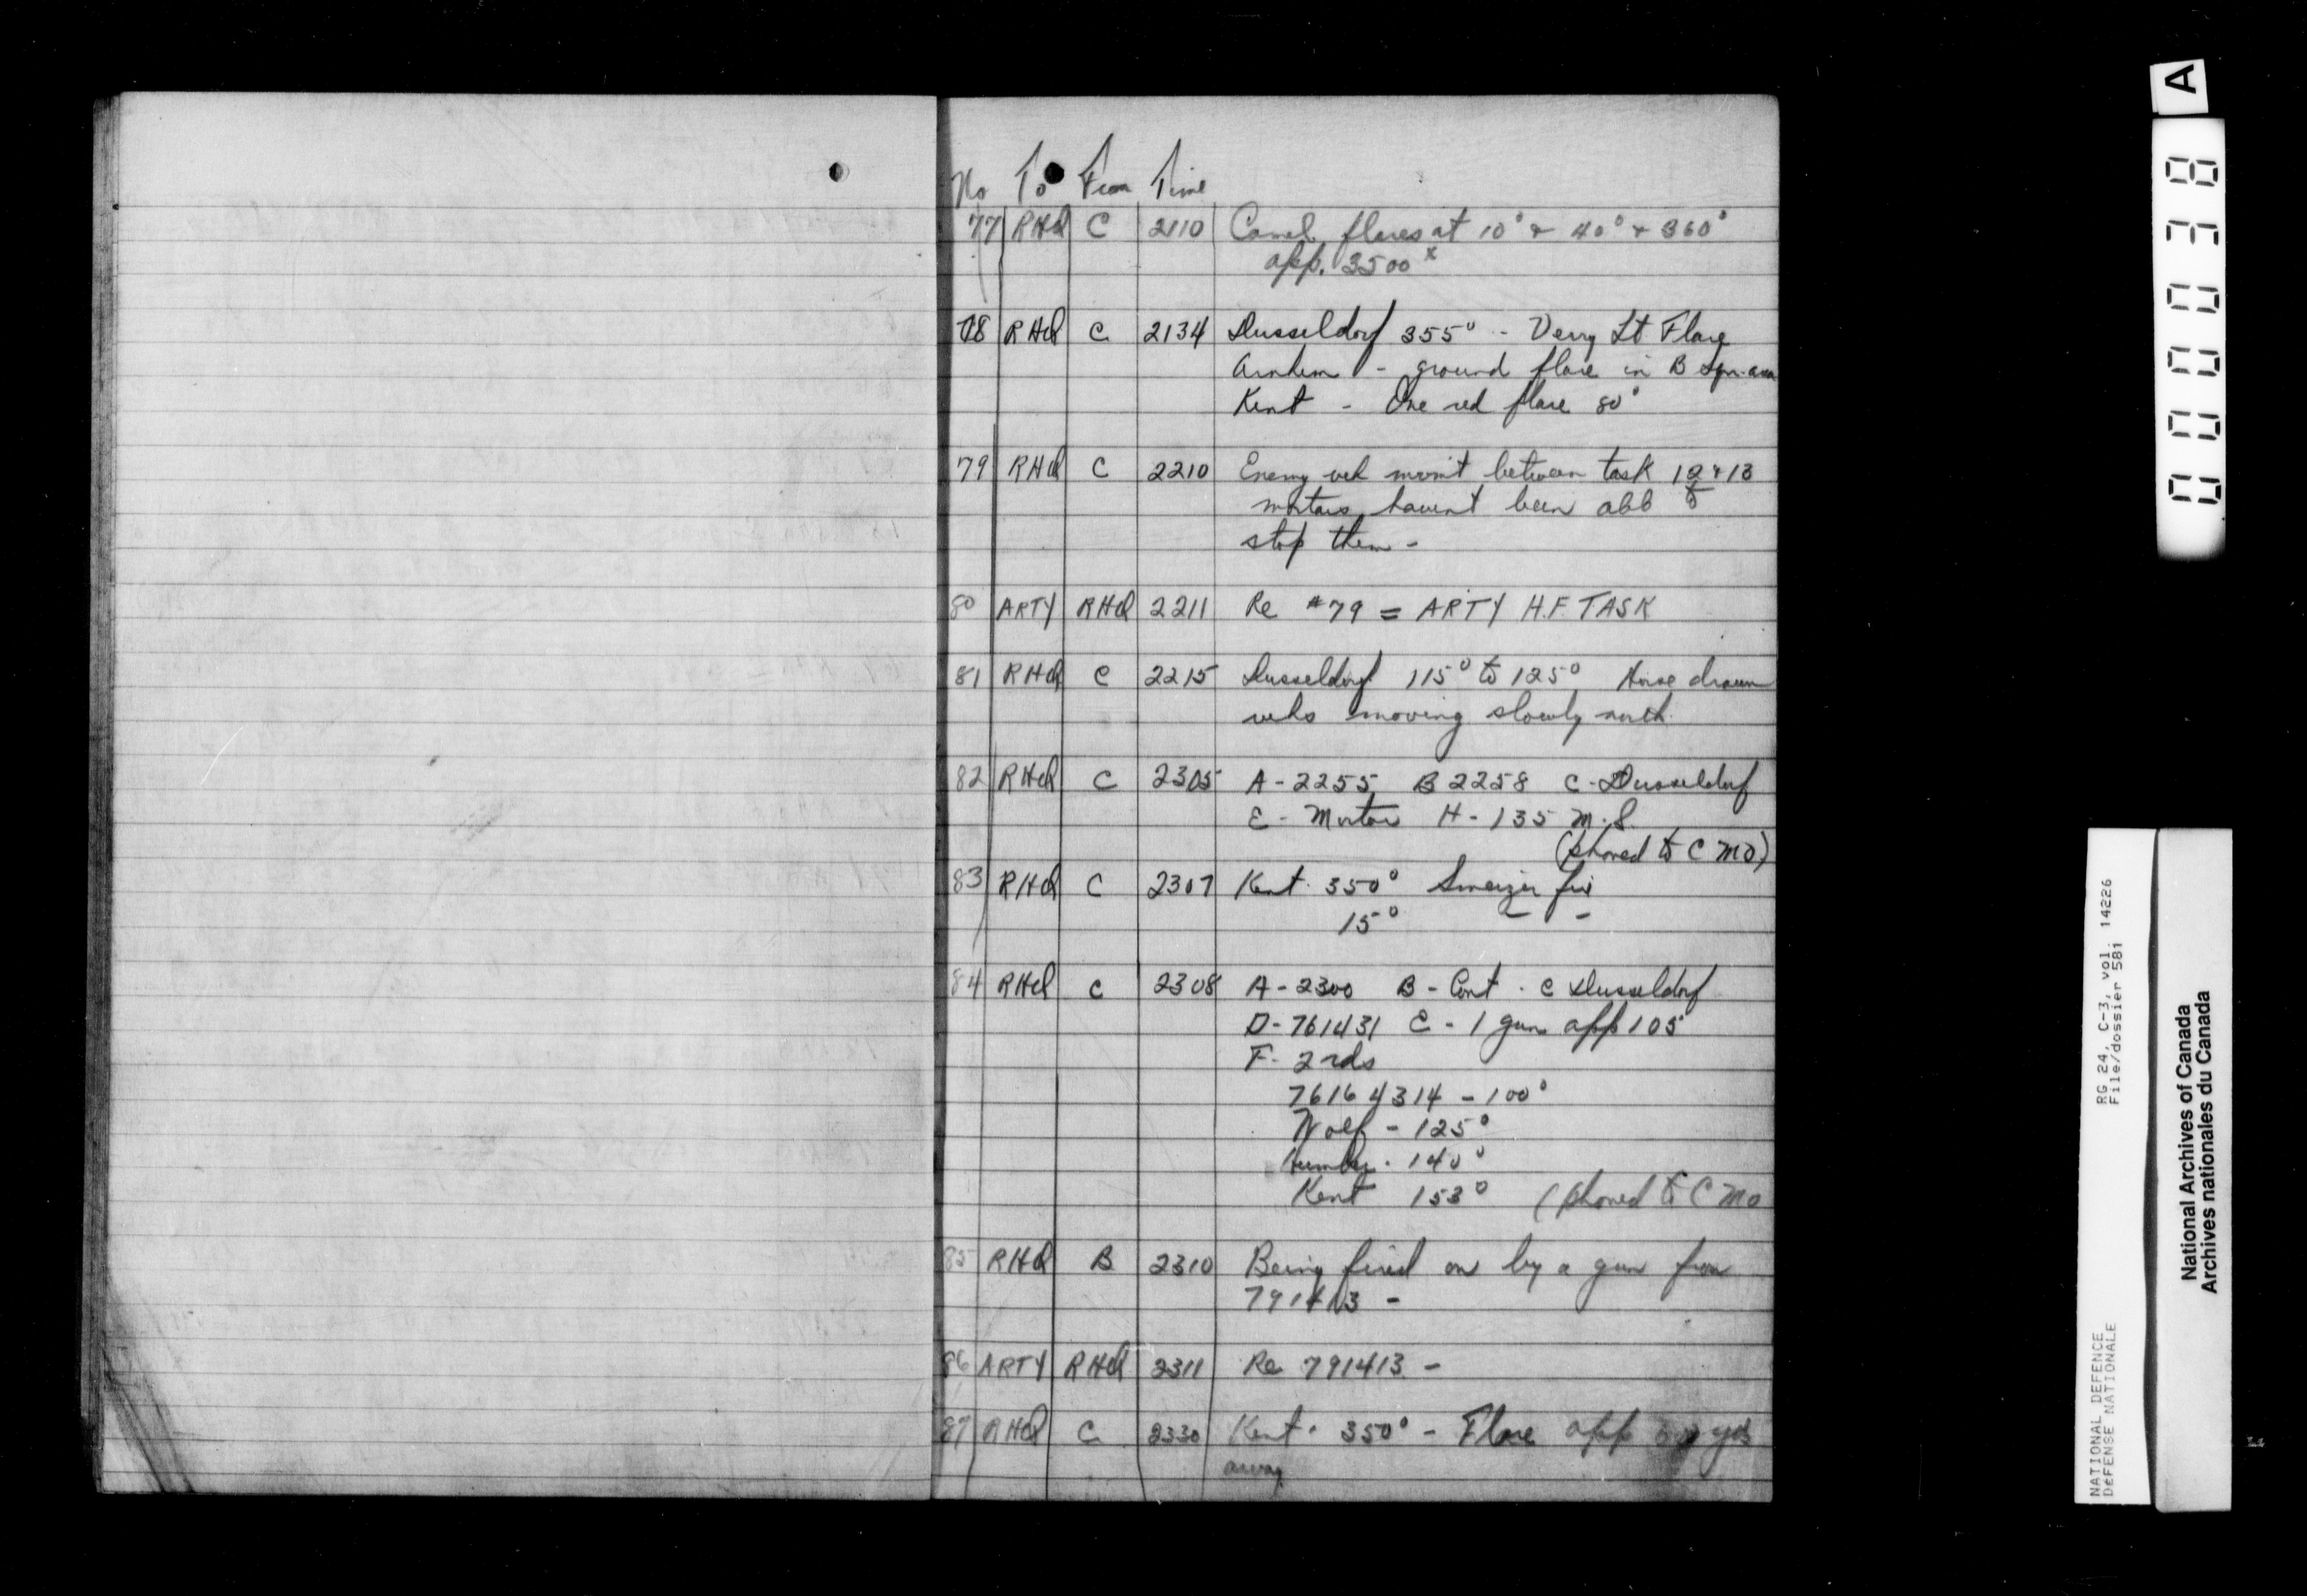 No To From Time
77 RHQ C 2110 Camel flares at 10° & 40° & 360°
app. 3500 x
78 RHQ C 2134 Dusseldorf 355° - Very Lt Flare
Arnhem - ground flare in B Sqn. area
Kent - One red flare 80°
79 RHQ C 2210 Enemy veh mov't between task 12 & 13
mortars havent been able to
stop them -
80 ARTY RHQ 2211 Re #79 = ARTY H.F. TASK
81 RHQ C 2215 Dusseldorf 115° to 125° Horse drawn
vehs moving slowly north.
82 RHQ C 2305 A - 2255 B 2258 C - Dusseldorf
E - Mortar H - 135 M.S.
(phoned to C MO)
83 RHQ C 2307 Kent. 350° Smeizer fire
15° - -
84 RHQ C 2308 A - 2300 B - Cont. C Dusseldorf
D - 761431 E - 1 gun app 105
F - 2 rds
76164314 - 100°
Wolf - 125°
Humber. 140°
Kent 153° (phoned to C MO
85 RHQ B 2310 Being fired on by a gun from
791413 -
86 ARTY RHQ 2311 Re 791413 -
87 RHQ C 2330 Kent. 350° - Flare app yds
away
A
000038
RG 24, C-3, vol. 14226
File/dossier 581
NATIONAL DEFENCE
DéFENSE NATIONALE
National Archives of Canada
Archives nationales du Canada